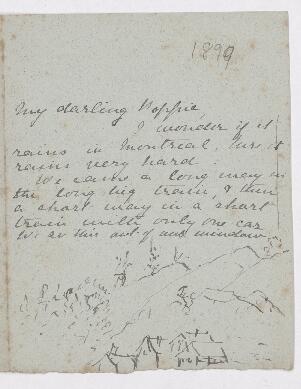 1899
My darling Poppie,
I wonder if it
rains in Montreal, here it
rains very hard.
We came a long way in
the long big train, & then
a short way in a short
train with only one car
We see this out of our window